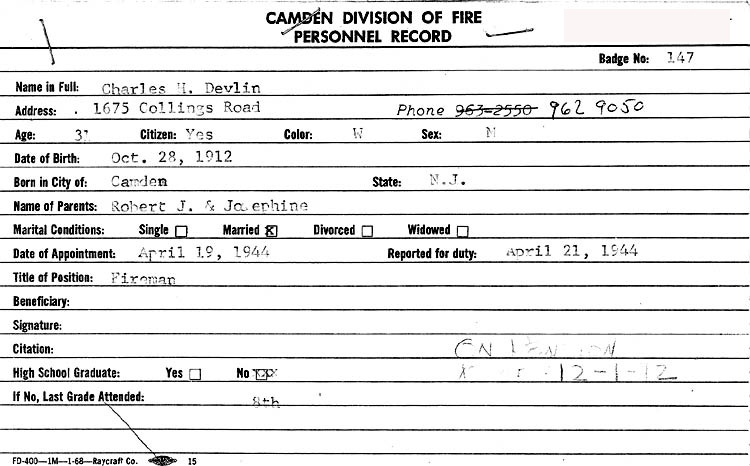 CAMDEN DIVISION OF FIRE
PERSONNEL RECORD
Badge No: 147
Name in Full: Charles H. Devlin
Address: . 1675 Collings Road Phone 963-2550 962 9050
Age: 31 Citizen: Yes Color: W Sex: M
Date of Birth: Oct. 28, 1912
Born in City of: Camden State: N.J.
Name of Parents: Robert J. & Josephine
Marital Conditions: Single Married X Divorced Widowed
Date of Appointment: April 19, 1944 Reported for duty: April 21, 1944
Title of Position: Fireman
Beneficiary:
Signature:
Citation: ON PENSION
High School Graduate: Yes No xxx 12-1-12
If No, Last Grade Attended: 8th
FD-400—1M—1-68—Raycraft Co. 15